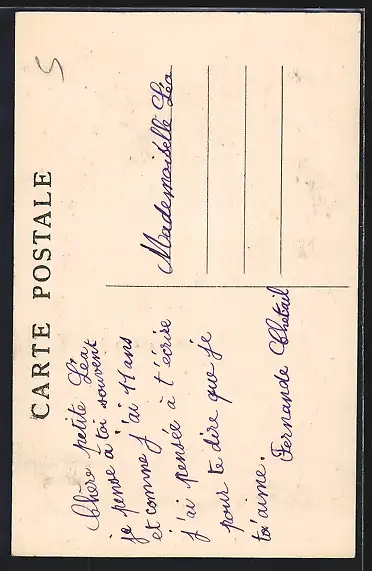 CARTE POSTALE
5
Chère petite Léa
je pense à toi souvent
et comme j'ai 11 ans
j'ai pensée à t'écrire
pour te dire que je
t'aime.
Fernande Chetail
Mademoiselle Léa